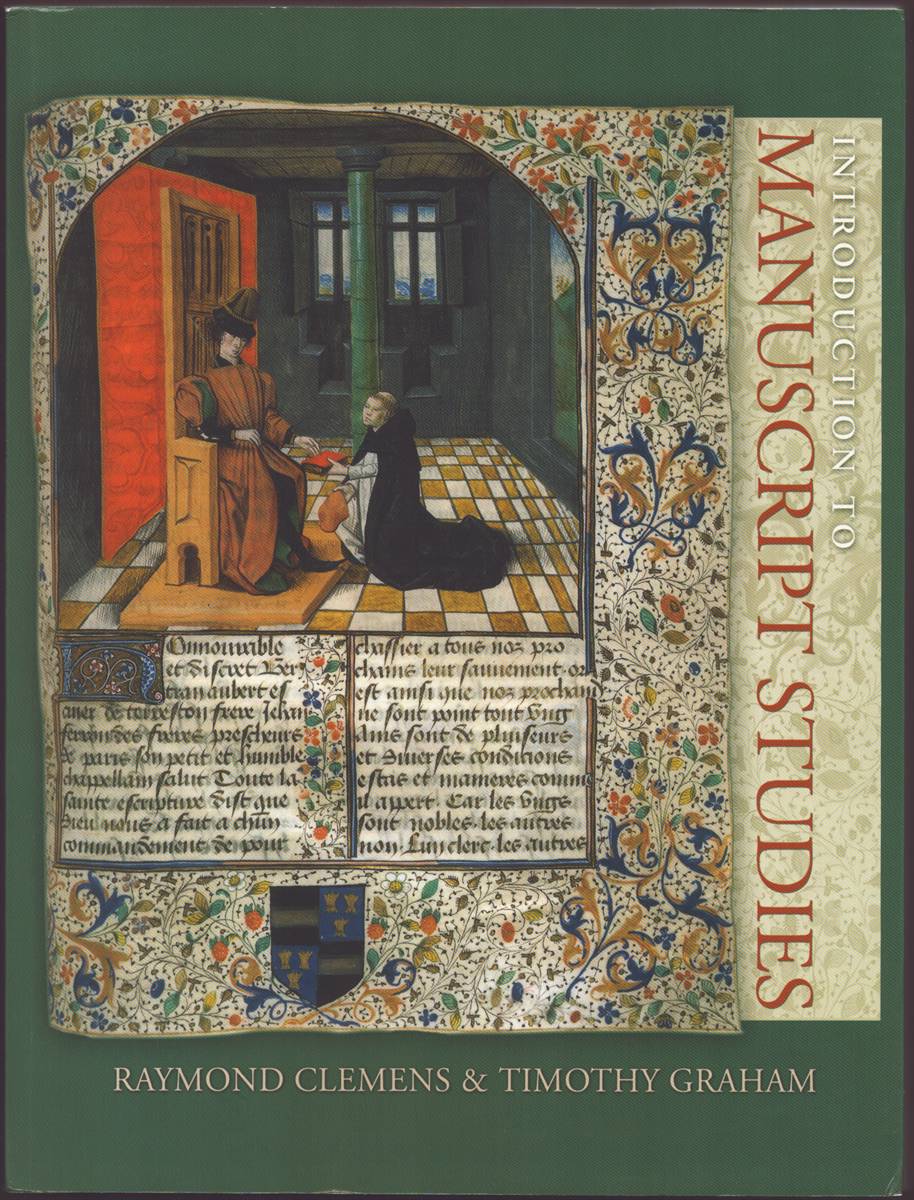 INTRODUCTION TO
MANUSCRIPT STUDIES
Onnourable
et discret Ber
tran aubert es
cuier de terrescon frere Jehan
ferron des freres prescheurs
de paris son petit et humble
chappellain salut Toute la
sainte escripture dist que
Dieu nous a fait a chūn
commandement de pour
chassier a tous nos pro
chains leur sauuement. or
est ainsi que nos prochain
ne sont point tout dung
ains sont de pluiseurs
et diuerses conditions
estas et manieres comme
il appert. Car les vngs
sont nobles. les autres
non. Lun clerc. les autres
RAYMOND CLEMENS & TIMOTHY GRAHAM